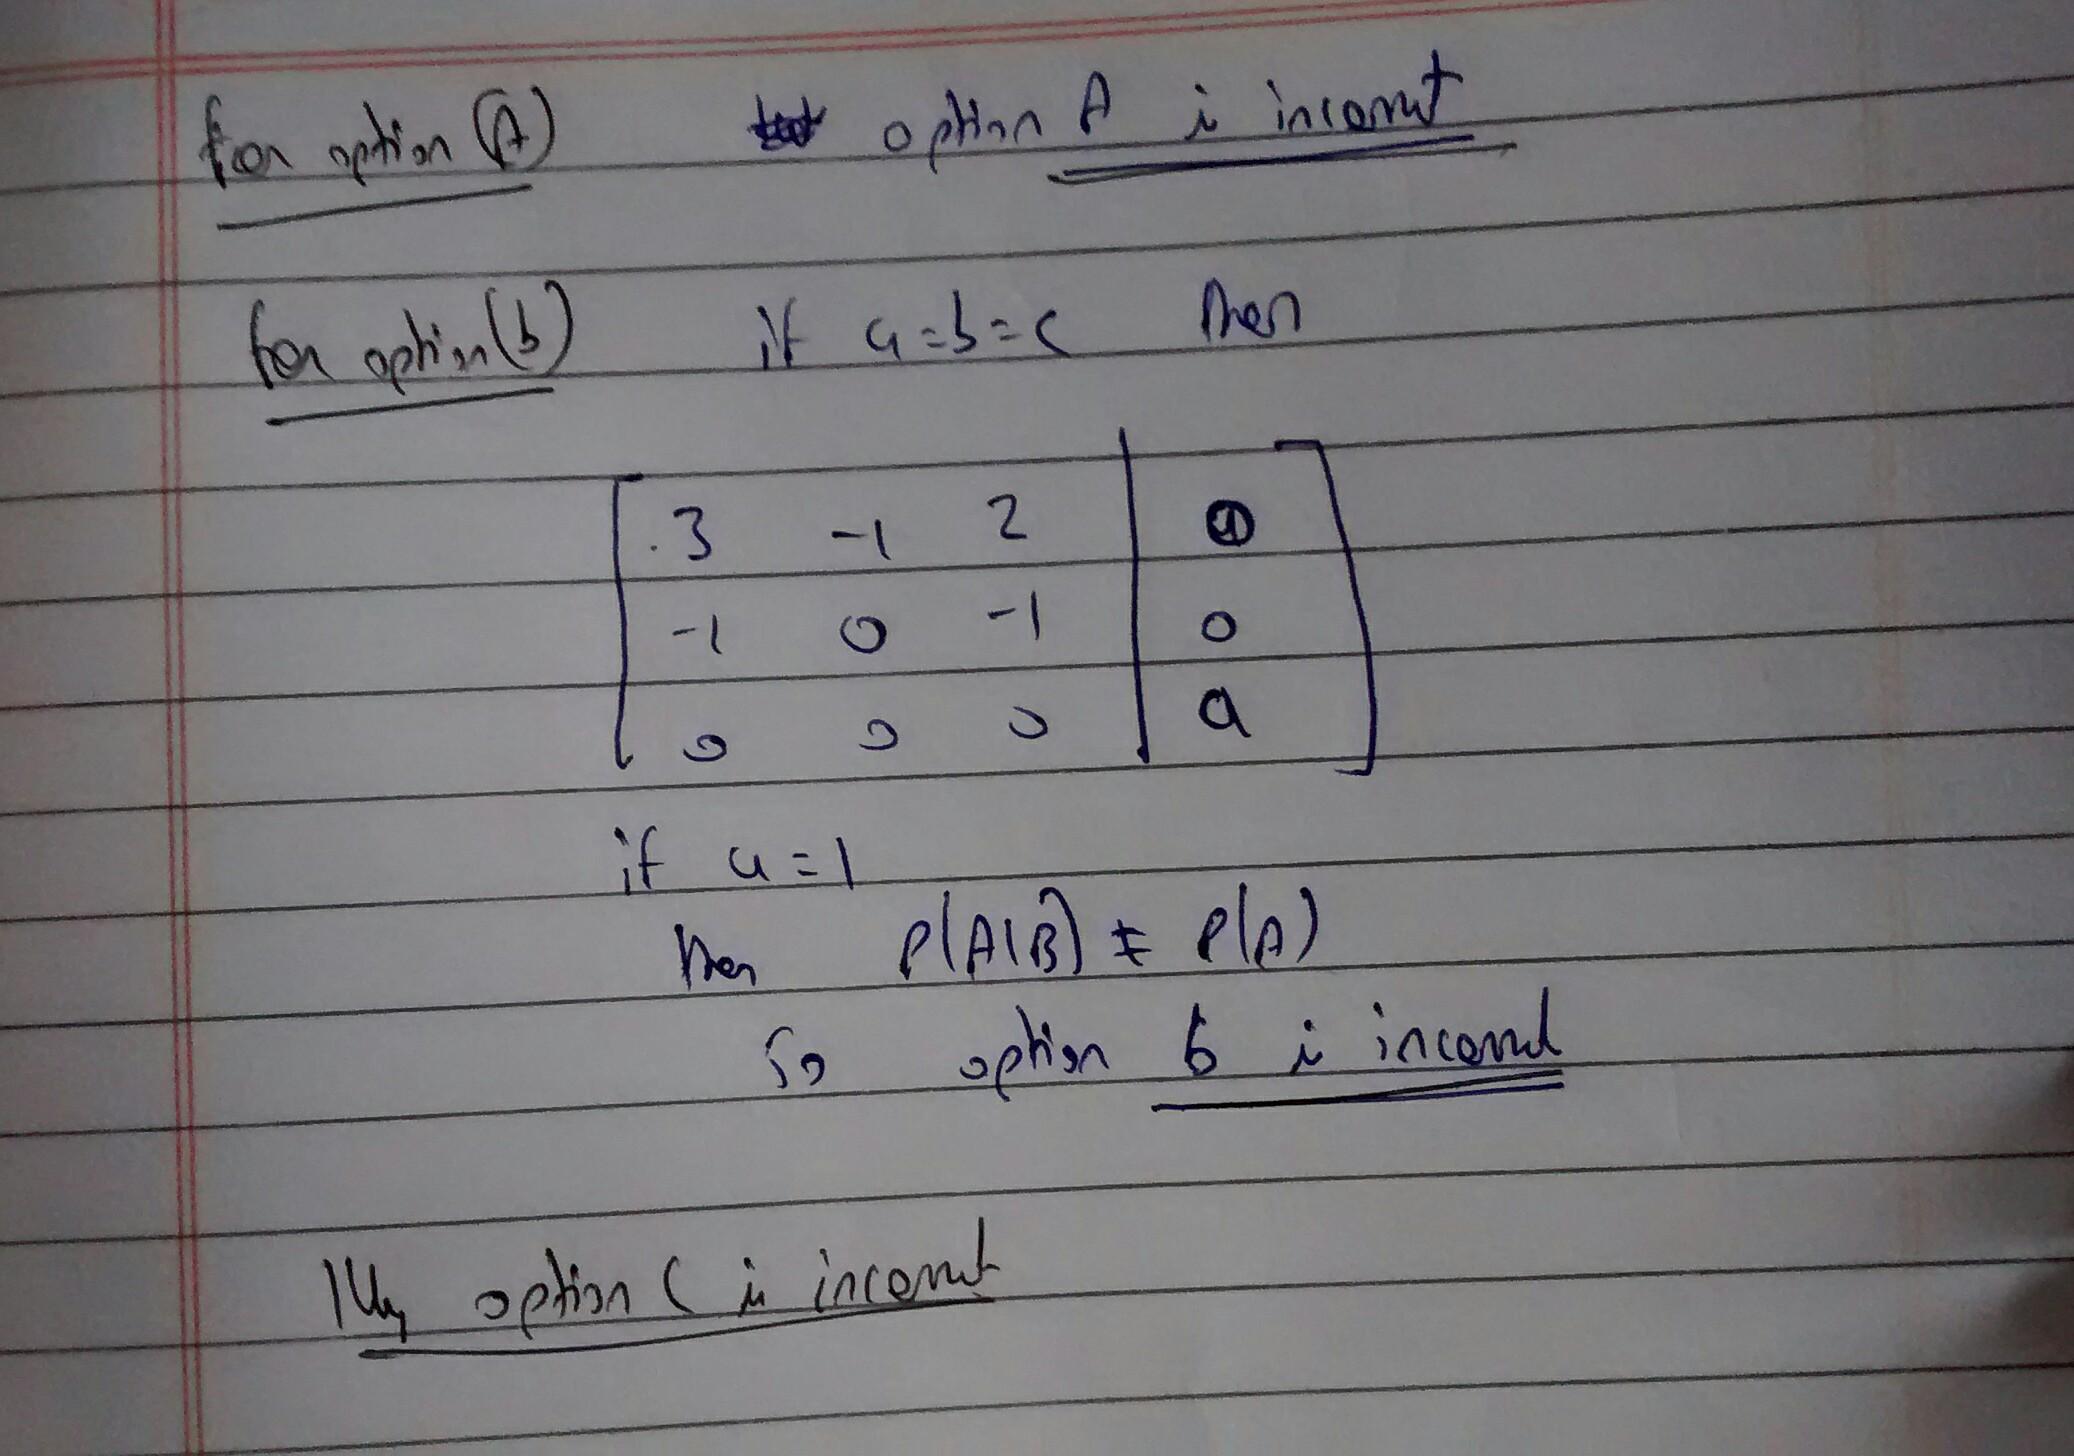 for option (A) option A is incorrect
for option (b) if a=b=c then
3 -1 2 a
-1 0 -1 0
0 0 0 a
if a=1
then ρ(A|B) ≠ ρ(A)
So option b is incorrect
|||ly option C is incorrect